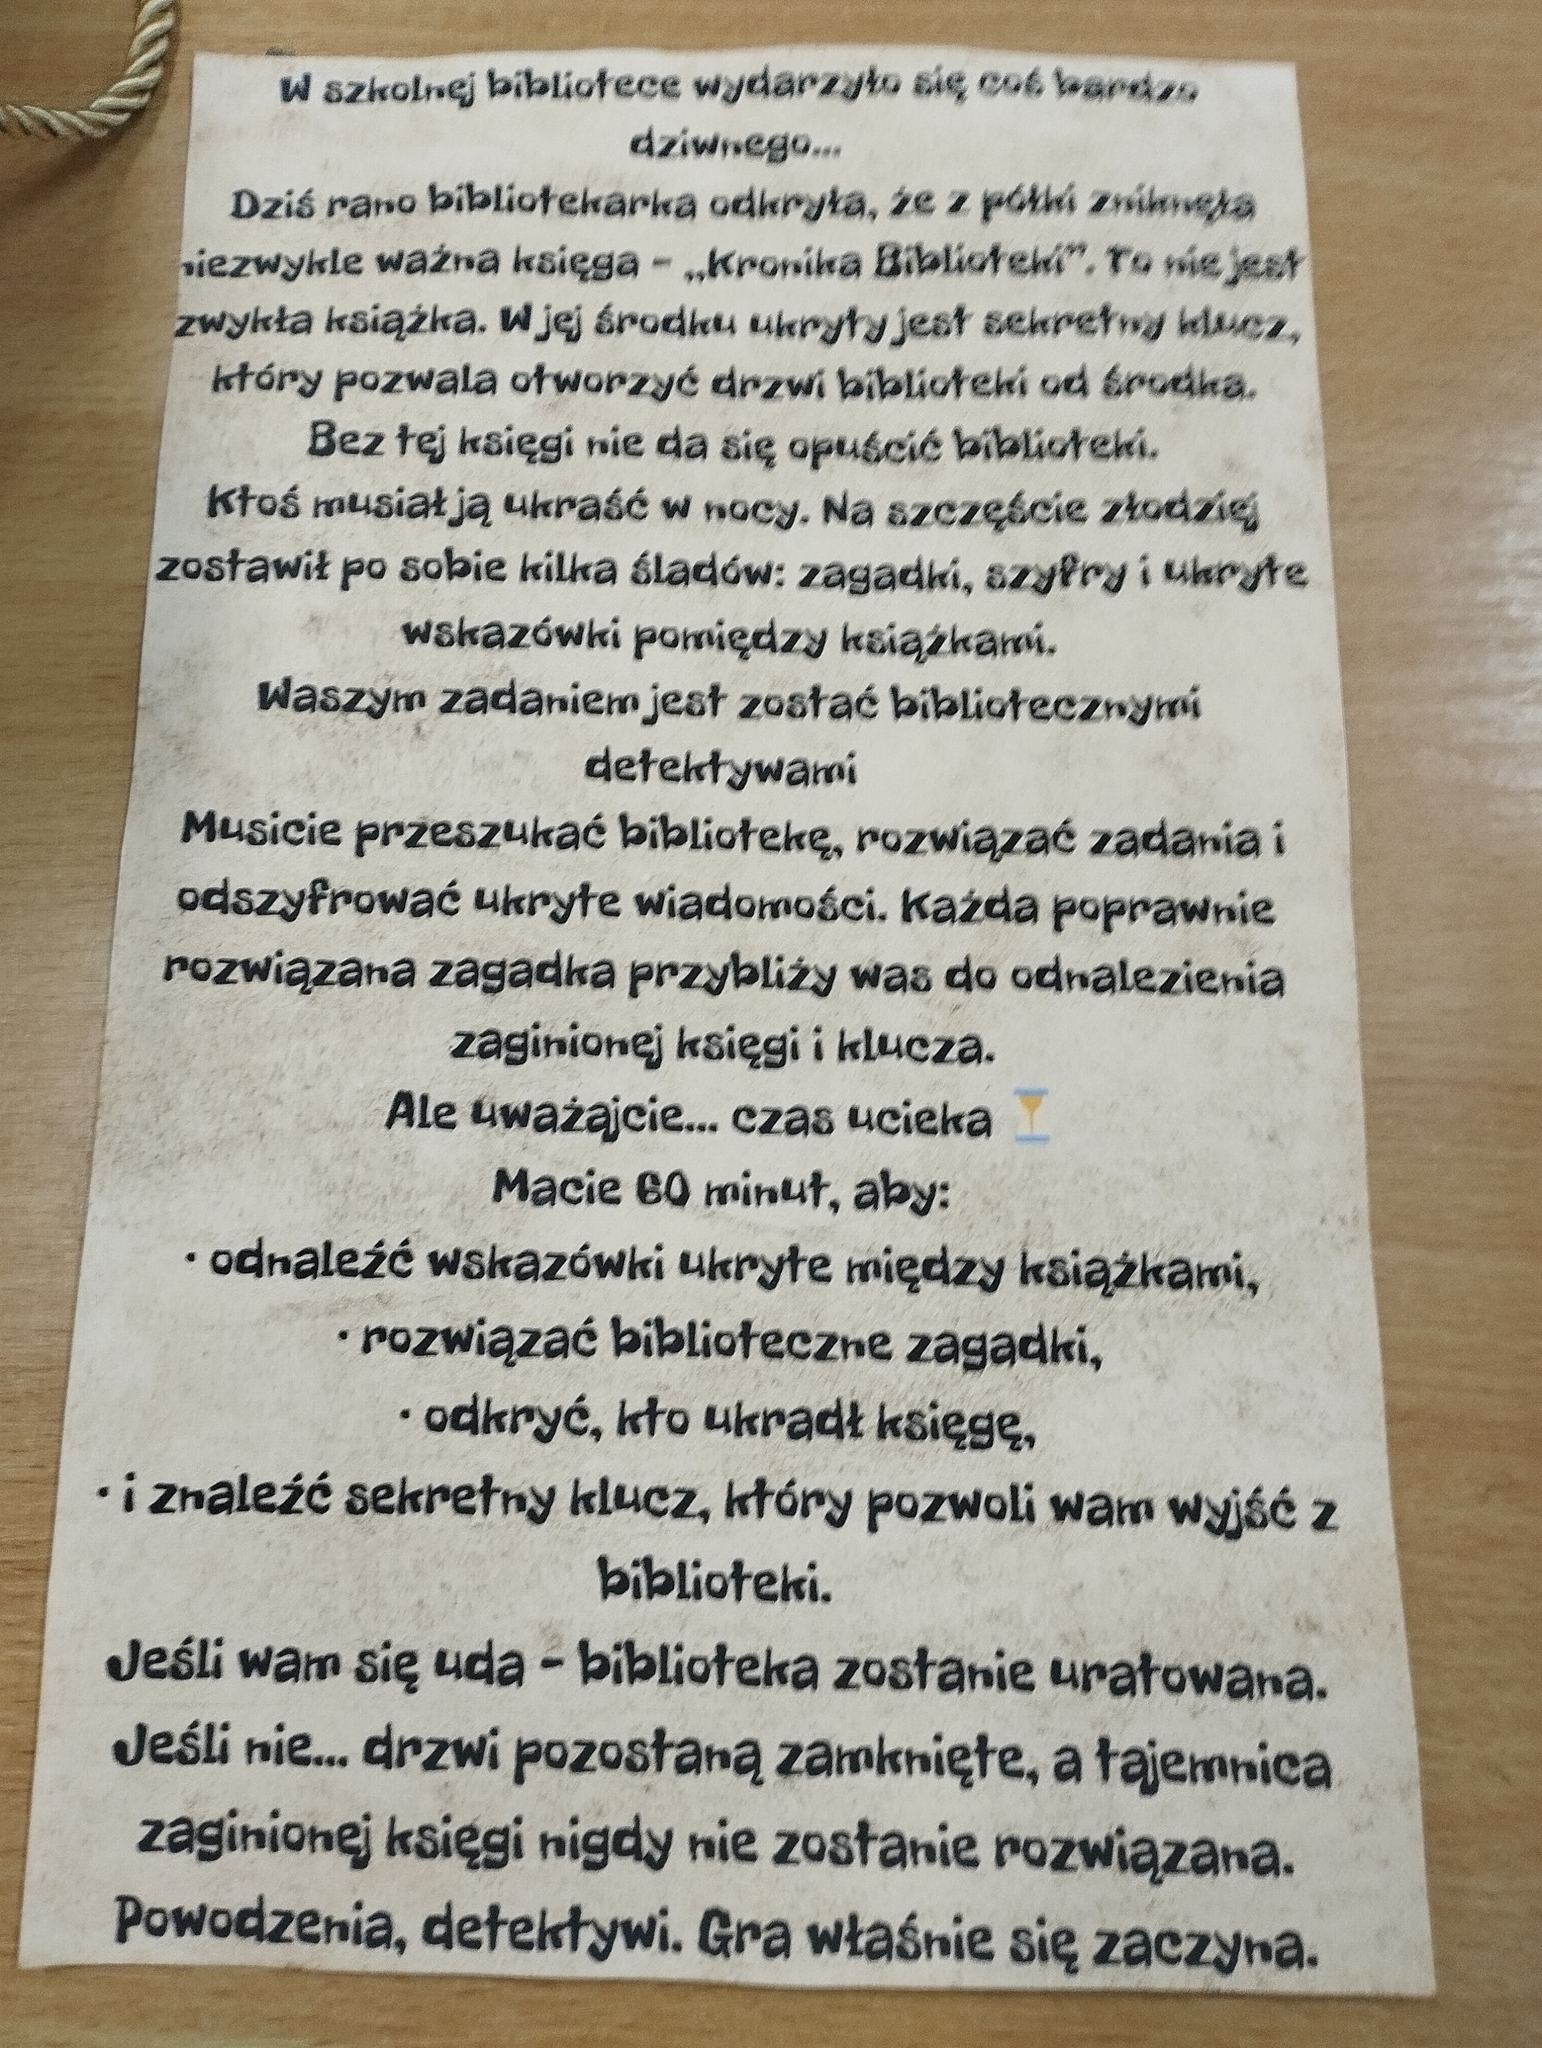 W szkolnej bibliotece wydarzyło się coś bardzo
dziwnego...
Dziś rano bibliotekarka odkryła, że z półki zniknęła
niezwykle ważna księga - „Kronika Biblioteki”. To nie jest
zwykła książka. W jej środku ukryty jest sekretny klucz,
który pozwala otworzyć drzwi biblioteki od środka.
Bez tej księgi nie da się opuścić biblioteki.
Ktoś musiał ją ukraść w nocy. Na szczęście złodziej
zostawił po sobie kilka śladów: zagadki, szyfry i ukryte
wskazówki pomiędzy książkami.
Waszym zadaniem jest zostać bibliotecznymi
detektywami
Musicie przeszukać bibliotekę, rozwiązać zadania i
odszyfrować ukryte wiadomości. Każda poprawnie
rozwiązana zagadka przybliży was do odnalezienia
zaginionej księgi i klucza.
Ale uważajcie... czas ucieka ⏳
Macie 60 minut, aby:
· odnaleźć wskazówki ukryte między książkami,
· rozwiązać biblioteczne zagadki,
· odkryć, kto ukradł księgę,
· i znaleźć sekretny klucz, który pozwoli wam wyjść z
biblioteki.
Jeśli wam się uda - biblioteka zostanie uratowana.
Jeśli nie... drzwi pozostaną zamknięte, a tajemnica
zaginionej księgi nigdy nie zostanie rozwiązana.
Powodzenia, detektywi. Gra właśnie się zaczyna.